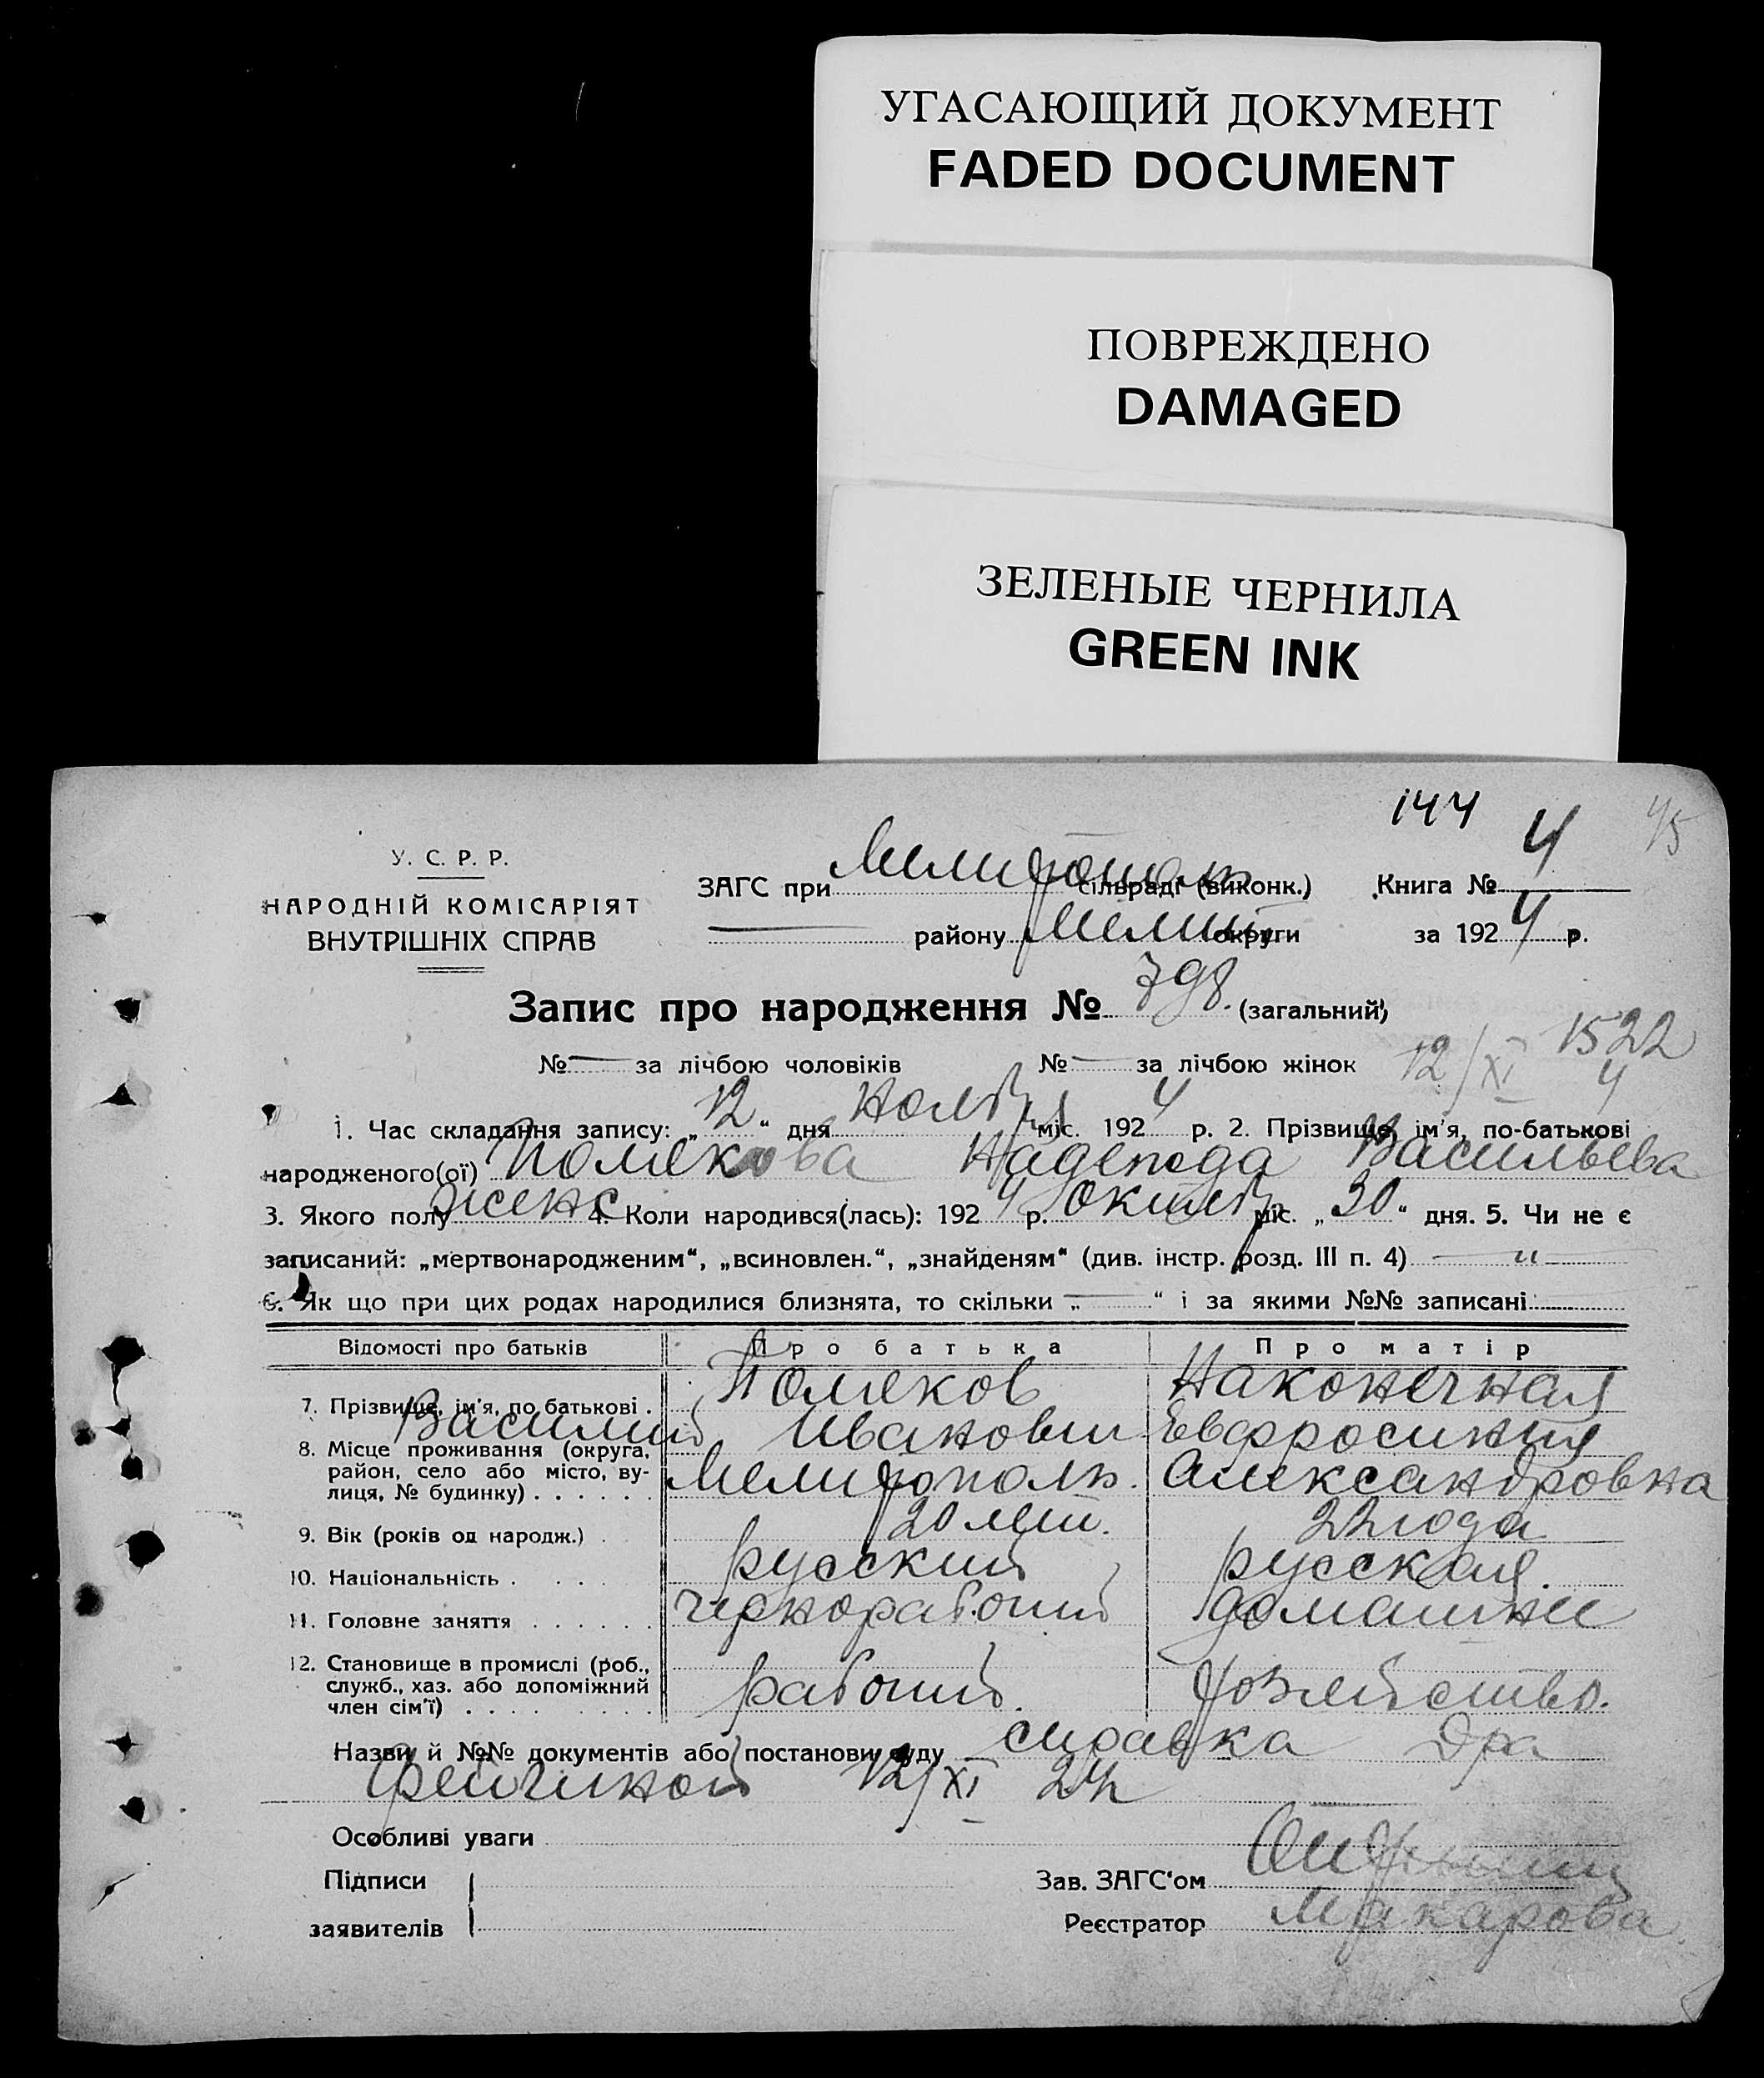 УГАСАЮЩИЙ ДОКУМЕНТ
FADED DOCUMENT
ПОВРЕЖДЕНО
DAMAGED
ЗЕЛЕНЫЕ ЧЕРНИЛА
GREEN INK
144
45
У. С. Р. Р.
НАРОДНІЙ КОМІСАРІЯТ
ВНУТРІШНІХ СПРАВ
ЗАГС при Мелитополь сільраді (виконк.) Книга № 4
району Мелит округи за 1924 р.
Запис про народження № 798. (загальний)
№ — за лічбою чоловіків № — за лічбою жінок 12/XI 1522
4
1. Час складання запису: „12“ дня Ноября міс. 1924 р. 2. Прізвище, ім'я, по-батькові
народженого(ої) Полякова Надежда Васильева
3. Якого полу женс 4. Коли народився(лась): 1924 р. Октябр міс. „30“ дня. 5. Чи не є
записаний: „мертвонародженим“, „всиновлен.“, „знайденям“ (див. інстр. розд. III п. 4) — „ —
6. Як що при цих родах народилися близнята, то скільки „—“ і за якими №№ записані
Відомості про батьків Про батька Про матір
7. Прізвище, ім'я, по батькові . Поляков Наконечная
Василий Иванович Евфросиния
8. Місце проживання (округа, район, село або місто, вулиця, № будинку) . . . . . . Мелитополь. Александровна
9. Вік (років од народж.) . 20 лет. 22 года
10. Національність . . . . русский русская.
11. Головне заняття . . . . . . чернорабочий домашнее
12. Становище в промислі (роб., служб., хаз. або допоміжний член сім'ї) . . . . рабочий. хозяйство.
Назви й №№ документів або постанови суду справка Дра
12/XI 24г
Особливі уваги
Підписи
заявителів
Зав. ЗАГС'ом
Реєстратор Макарова